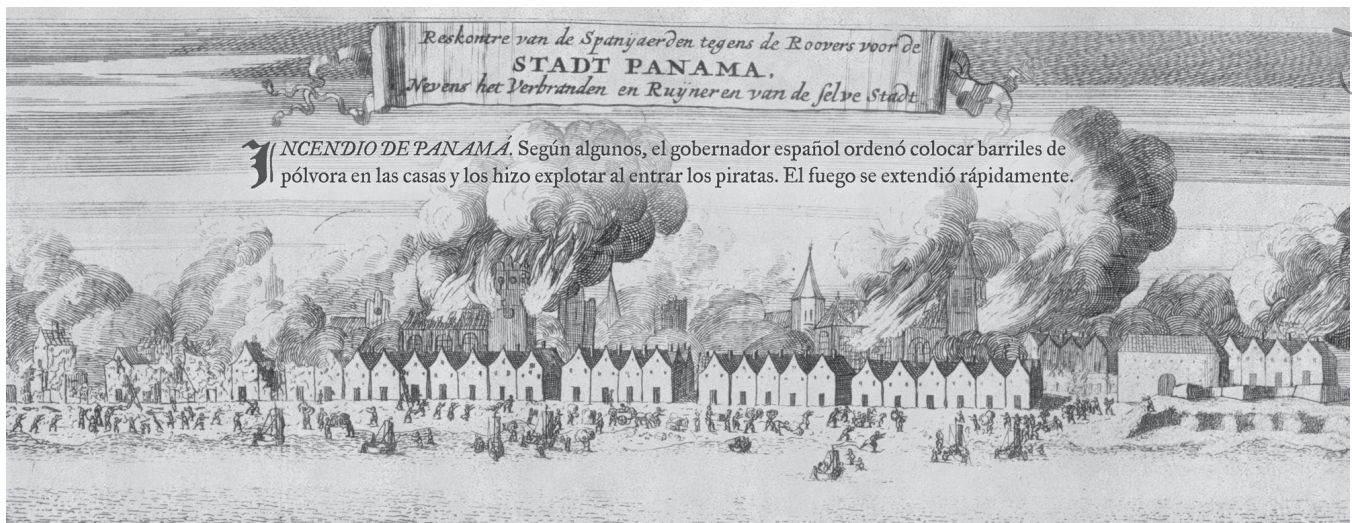 Reskontre van de Spanyaerden tegens de Roovers voor de
STADT PANAMA,
Nevens het Verbranden en Ruÿneren van de selve Stadt
INCENDIO DE PANAMÁ. Según algunos, el gobernador español ordenó colocar barriles de
pólvora en las casas y los hizo explotar al entrar los piratas. El fuego se extendió rápidamente.